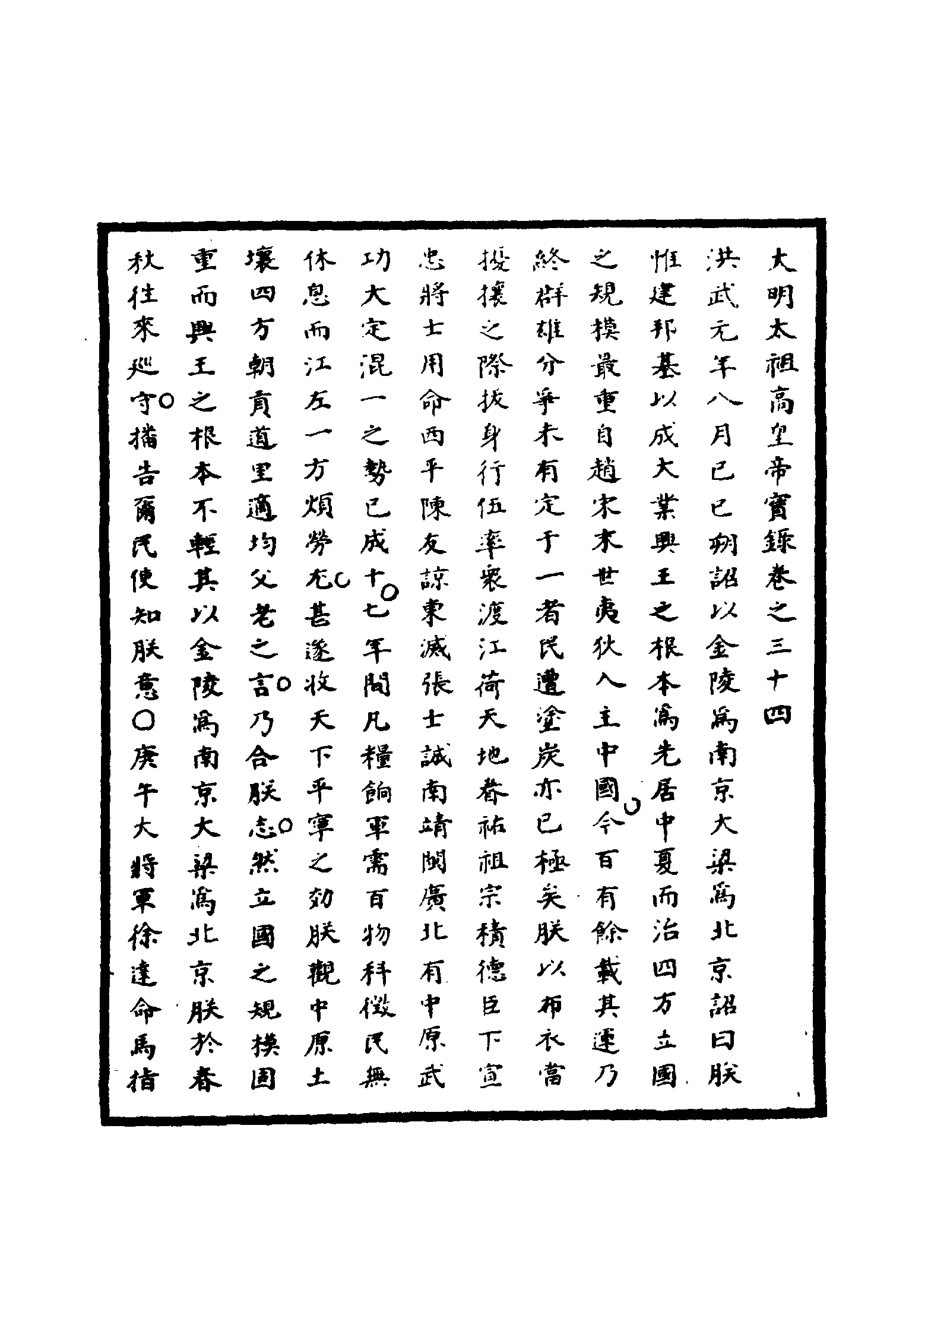 大明太祖高皇帝實錄卷之三十四
洪武元年八月己巳朔詔以金陵爲南京大梁爲北京詔曰朕
惟建邦基以成大業興王之根本爲先居中夏而治四方立國
之規模最重自趙宋末世夷狄入主中國今百有餘載其運乃
終群雄分爭未有定于一者民遭塗炭亦已極矣朕以布衣當
擾攘之際拔身行伍率衆渡江荷天地眷祐祖宗積德臣下宣
忠將士用命西平陳友諒東滅張士誠南靖閩廣北有中原武
功大定混一之勢已成十七年間凡糧餉軍需百物科徵民無
休息而江左一方煩勞尤甚遂收天下平寧之効朕觀中原土
壤四方朝貢道里適均父老之言乃合朕志然立國之規模固
重而興王之根本不輕其以金陵爲南京大梁爲北京朕於春
秋往來巡守播告爾民使知朕意○庚午大將軍徐達命馬指